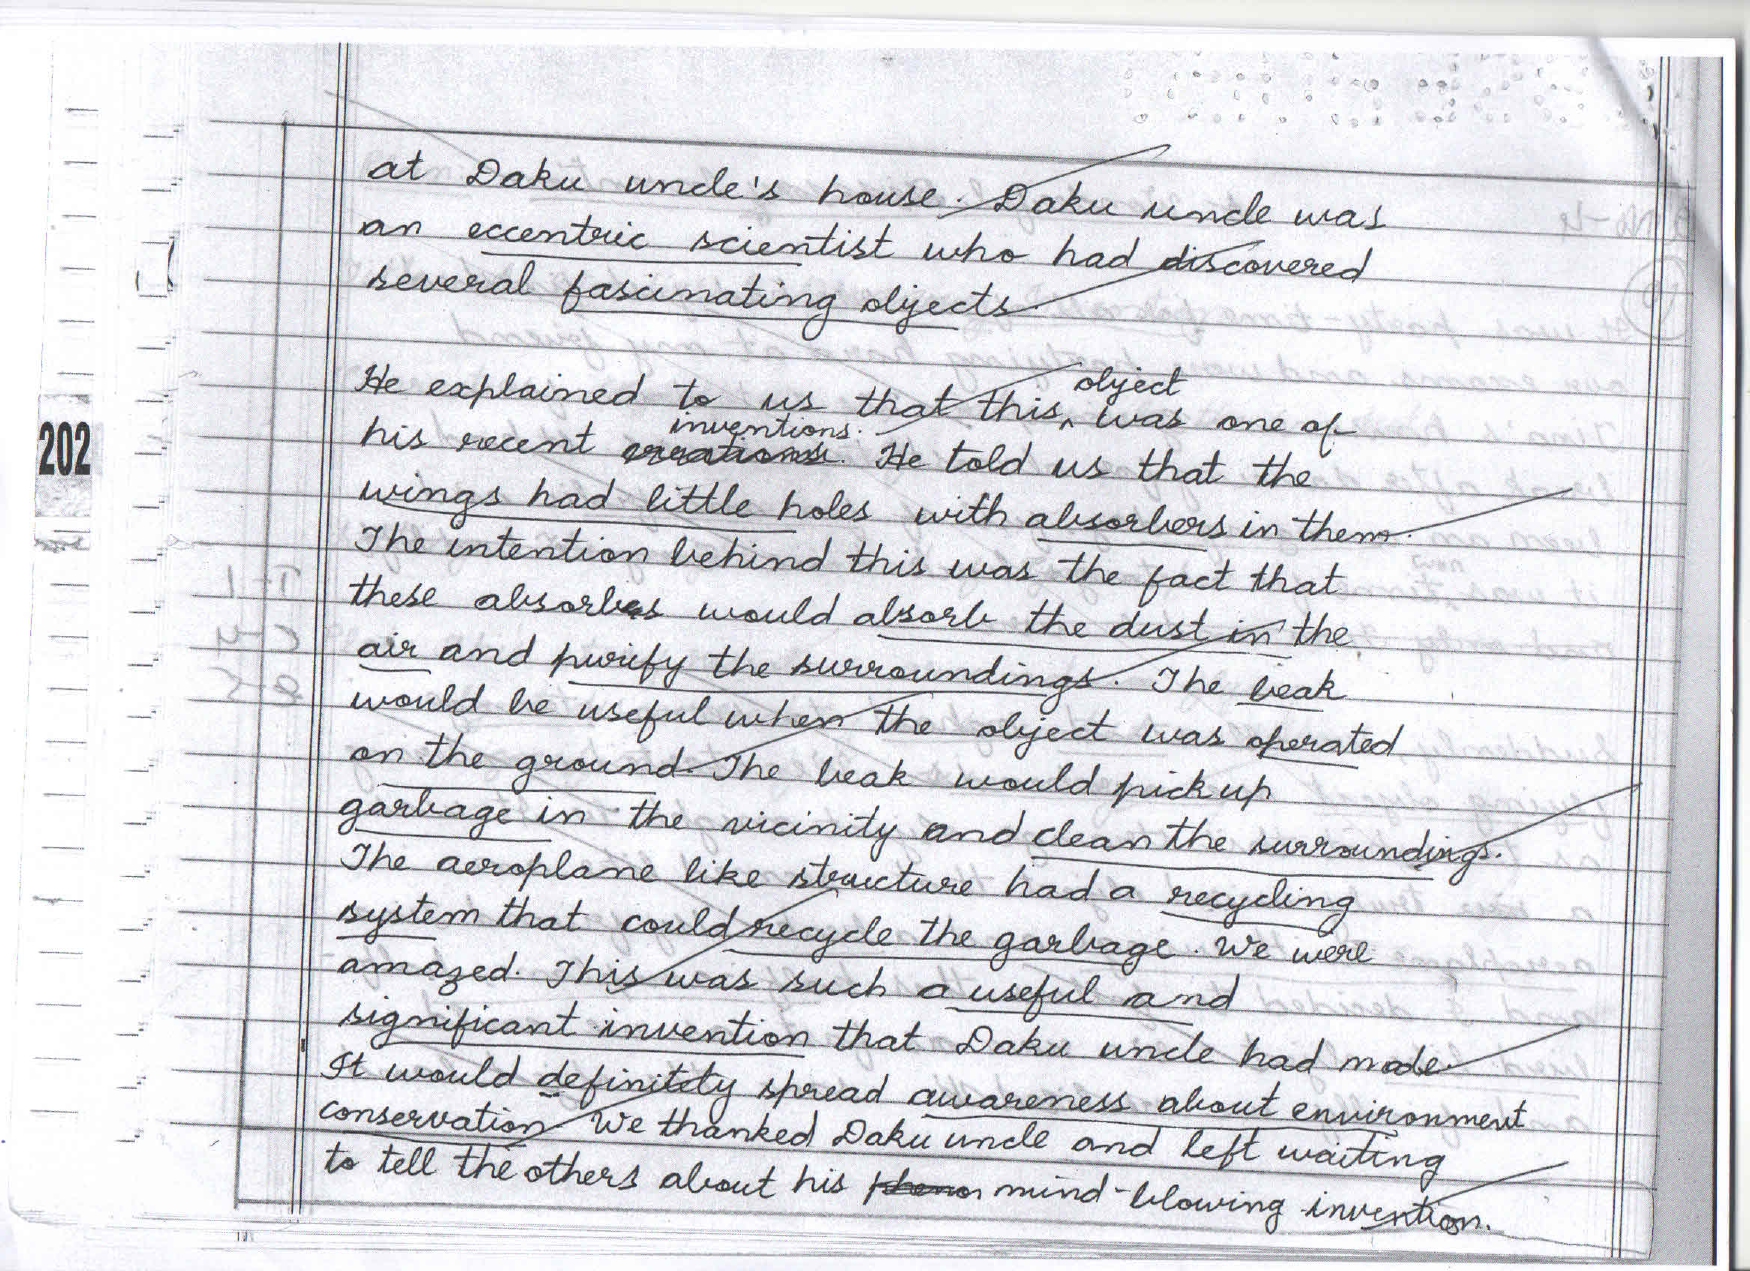 at Daku uncle's house. Daku uncle was
an eccentric scientist who had discovered
several fascinating objects.
He explained to us that this ^ object was one of
his recent creations. inventions. He told us that the
wings had little holes with absorbers in them.
The intention behind this was the fact that
these absorbes would absorb the dust in the
air and purify the surroundings. The beak
would be useful when the object was operated
on the ground. The beak would pick up
garbage in the vicinity and clean the surroundings.
The aeroplane like structure had a recycling
system that could recycle the garbage. We were
amazed. This was such a useful and
significant invention that Daku uncle had made.
It would definitety spread awareness about environment
conservation. We thanked Daku uncle and left waiting
to tell the others about his mind-blowing invention.
202